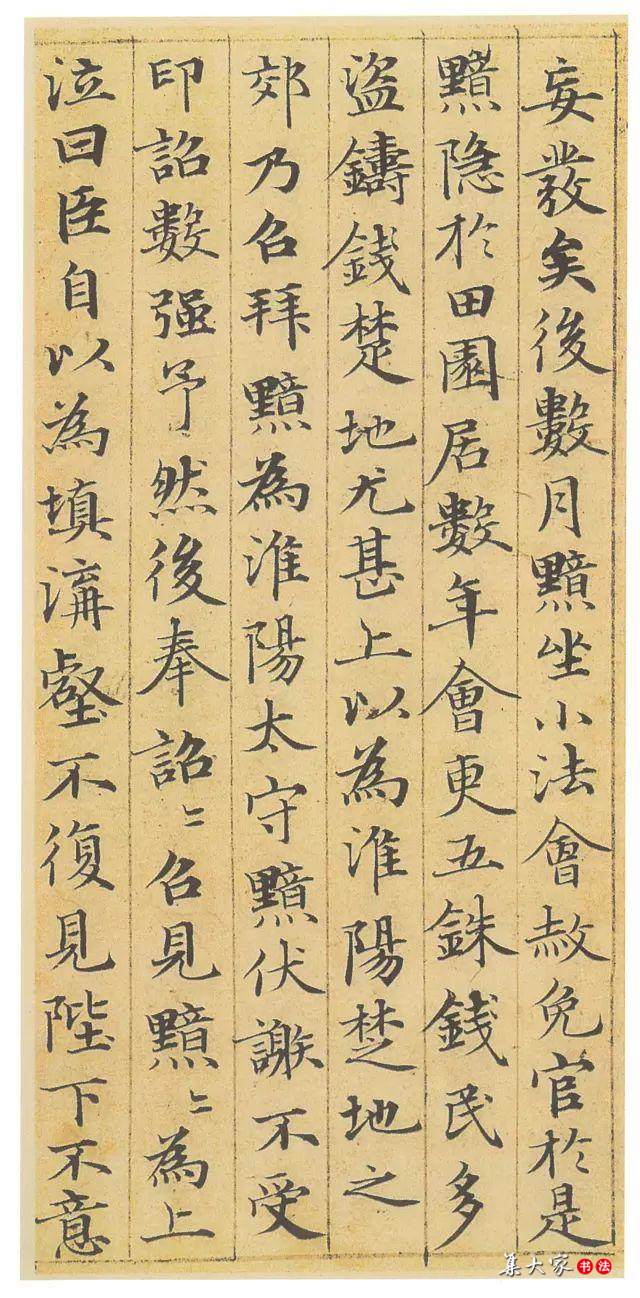 妄發矣後數月黯坐小法會赦免官於是
黯隐於田園居數年會更五銖錢民多
盗鑄錢楚地尤甚上以為淮陽楚地之
郊乃召拜黯為淮陽太守黯伏謝不受
印詔數强予然後奉詔〻召見黯〻為上
泣曰臣自以為填溝壑不復見陛下不意
集大家书法